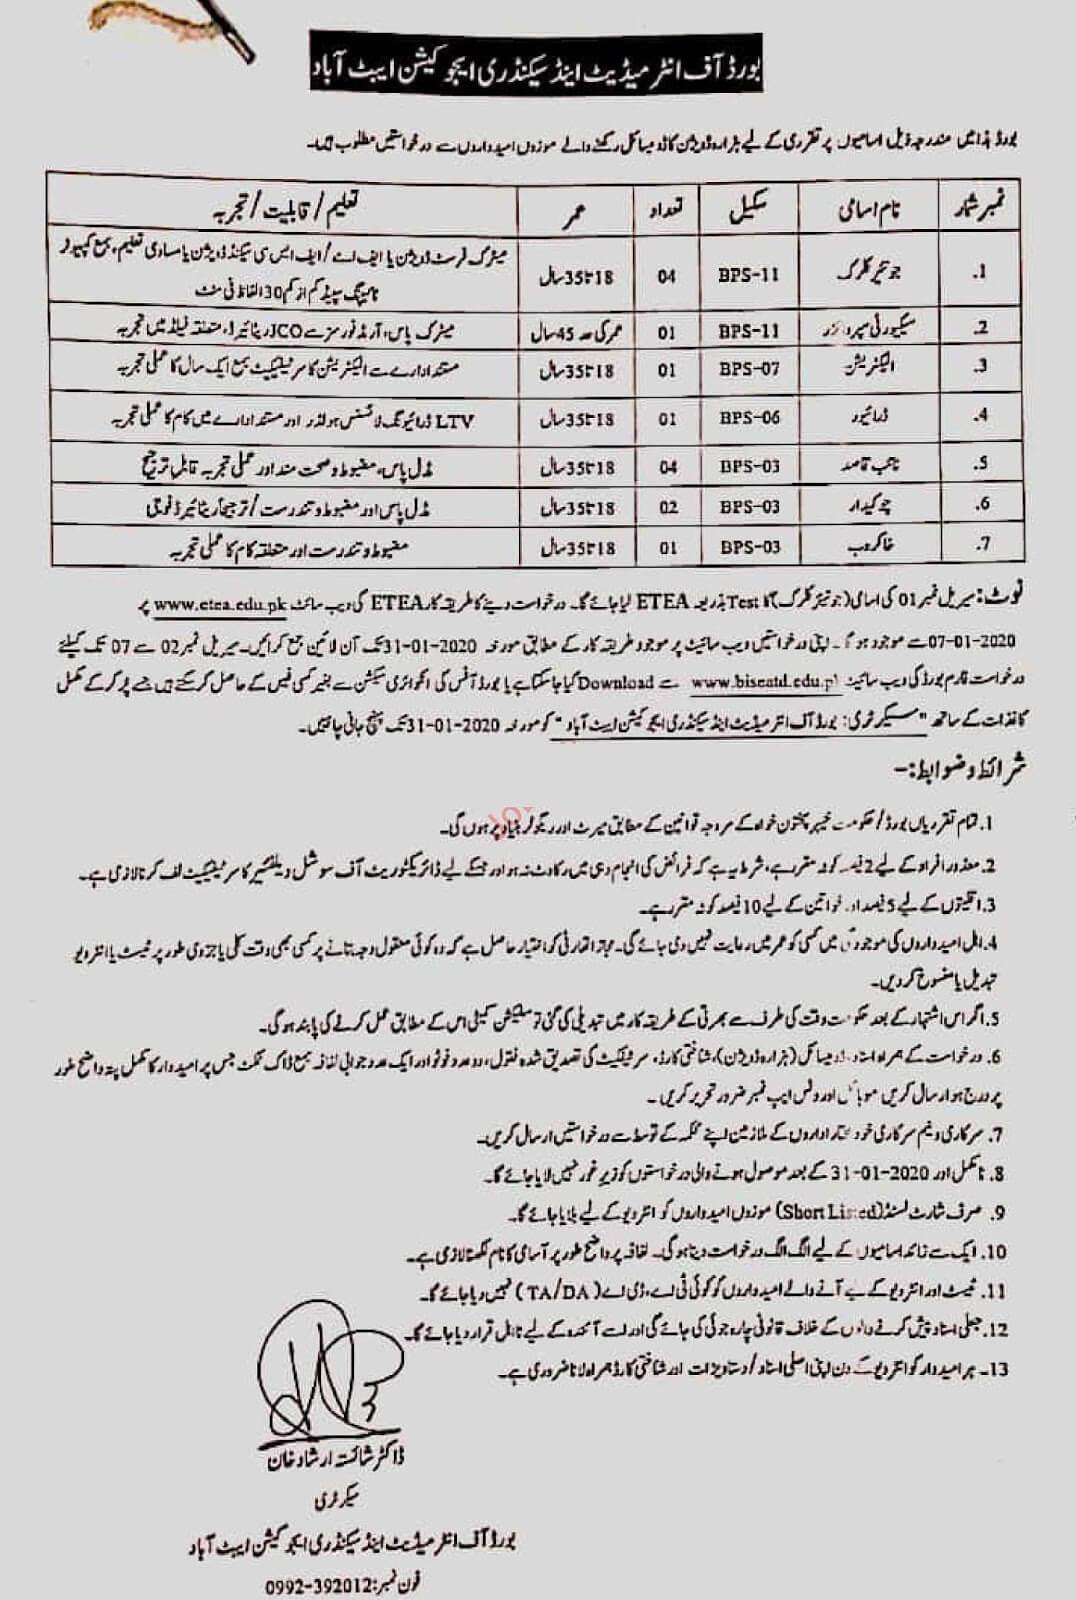 بورڈ آف انٹر میڈیٹ اینڈ سیکنڈری ایجوکیشن ایبٹ آباد
بورڈ ہذا میں مندرجہ ذیل اسامیوں پر تقرری کے لیے ہزارہ ڈویژن کا ڈومیسائل رکھنے والے موزوں امیدواروں سے درخواستیں مطلوب ہیں۔
نمبر شمار نام اسامی سکیل تعداد عمر تعلیم / قابلیت / تجربہ
.1 جونیئر کلرک BPS-11 04 18 تا 35 سال میٹرک فرسٹ ڈویژن یا ایف اے / ایف ایس سی سیکنڈ ڈویژن یا مساوی تعلیم، بمع کمپیوٹر
ٹائپنگ سپیڈ کم از کم 30 الفاظ فی منٹ
.2 سیکیورٹی سپروائزر BPS-11 01 عمر کی حد 45 سال میٹرک پاس، آرمڈ فورسز سے JCO ریٹائیرڈ، متعلقہ فیلڈ میں تجربہ
.3 الیکٹریشن BPS-07 01 18 تا 35 سال مستند ادارے سے الیکٹریشن کا سرٹیفکیٹ بمع ایک سال کا عملی تجربہ
.4 ڈرائیور BPS-06 01 18 تا 35 سال LTV ڈرائیونگ لائسنس ہولڈر اور مستند ادارے میں کام کا عملی تجربہ
.5 نائب قاصد BPS-03 04 18 تا 35 سال مڈل پاس، مضبوط و صحت مند اور عملی تجربہ قابل ترجیح
.6 چوکیدار BPS-03 02 18 تا 35 سال مڈل پاس اور مضبوط و تندرست / ترجیحاً ریٹائیرڈ فوجی
.7 خاکروب BPS-03 01 18 تا 35 سال مضبوط و تندرست اور متعلقہ کام کا عملی تجربہ
نوٹ: سیریل نمبر 01 کی اسامی (جونیئر کلرک) کا Test بذریعہ ETEA لیا جائے گا۔ درخواست دینے کا طریقہ کار ETEA کی ویب سائٹ www.etea.edu.pk پر
07-01-2020 سے موجود ہو گا۔ اپنی درخواستیں ویب سائیٹ پر موجود طریقہ کار کے مطابق مورخہ 31-01-2020 تک آن لائین جمع کرائیں۔ سیریل نمبر 02 سے 07 تک کیلئے
درخواست فارم بورڈ کی ویب سائیٹ www.biseatd.edu.pk سے Download کیا جا سکتا ہے یا بورڈ آفس کی انکوائری سیکشن سے بغیر کسی فیس کے حاصل کر سکتے ہیں جسے پُر کر کے مکمل
کاغذات کے ساتھ "سیکرٹری: بورڈ آف انٹر میڈیٹ اینڈ سیکنڈری ایجوکیشن ایبٹ آباد" کو مورخہ 31-01-2020 تک پہنچ جانی چاہئیں۔
شرائط و ضوابط:-
.1 تمام تقرریاں بورڈ / حکومت خیبر پختون خواہ کے مروجہ قوانین کے مطابق میرٹ اور ریگولر بنیاد پر ہوں گی۔
.2 معذور افراد کے لیے 2 فیصد کوٹہ مقرر ہے، شرط یہ ہے کہ فرائض کی انجام دہی میں رکاوٹ نہ ہو اور جسکے لیے ڈائریکٹوریٹ آف سوشل ویلفئیر کا سرٹیفکیٹ لف کرنا لازمی ہے۔
.3 اقلیتوں کے لیے 5 فیصد اور خواتین کے لیے 10 فیصد کوٹہ مقرر ہے۔
.4 اہل امیدواروں کی موجودگی میں کسی کو عمر میں رعایت نہیں دی جائے گی۔ مجاز اتھارٹی کو اختیار حاصل ہے کہ وہ کوئی معقول وجہ بتانے پر کسی بھی وقت کلی یا جزوی طور پر ٹیسٹ یا انٹرویو
تبدیل یا منسوخ کر دیں۔
.5 اگر اس اشتہار کے بعد حکومت وقت کی طرف سے بھرتی کے طریقہ کار میں تبدیلی کی گئی تو سلیکشن کمیٹی اس کے مطابق عمل کرنے کی پابند ہو گی۔
.6 درخواست کے ہمراہ اسناد، ڈومیسائل (ہزارہ ڈویژن)، شناختی کارڈ، سرٹیفکیٹ کی تصدیق شدہ نقول، دو عدد فوٹو اور ایک عدد جوابی لفافہ بمع ڈاک ٹکٹ جس پر امیدوار کا مکمل پتہ واضح طور
پر درج ہو ارسال کریں موبائل اور وٹس ایپ نمبر ضرور تحریر کریں۔
.7 سرکاری و نیم سرکاری خود مختار اداروں کے ملازمین اپنے محکمہ کے توسط سے درخواستیں ارسال کریں۔
.8 نامکمل اور 31-01-2020 کے بعد موصول ہونے والی درخواستوں کو زیر غور نہیں لایا جائے گا۔
.9 صرف شارٹ لسٹڈ (Short Listed) موزوں امیدواروں کو انٹرویو کے لیے بلایا جائے گا۔
.10 ایک سے زائد اسامیوں کے لیے الگ الگ درخواست دینا ہو گی۔ لفافہ پر واضح طور پر آسامی کا نام لکھنا لازمی ہے۔
.11 ٹیسٹ اور انٹرویو کے لیے آنے والے امیدواروں کو کوئی ٹی اے، ڈی اے (TA/DA) نہیں دیا جائے گا۔
.12 جعلی اسناد پیش کرنے والوں کے خلاف قانونی چارہ جوئی کی جائے گی اور اسے آئندہ کے لیے نااہل قرار دیا جائے گا۔
13۔ ہر امیدوار کو انٹرویو کے دن اپنی اصلی اسناد / دستاویزات اور شناختی کارڈ ہمراہ لانا ضروری ہے۔
ڈاکٹر شائستہ ارشاد خان
سیکرٹری
بورڈ آف انٹر میڈیٹ اینڈ سیکنڈری ایجوکیشن ایبٹ آباد
فون نمبر: 0992-392012